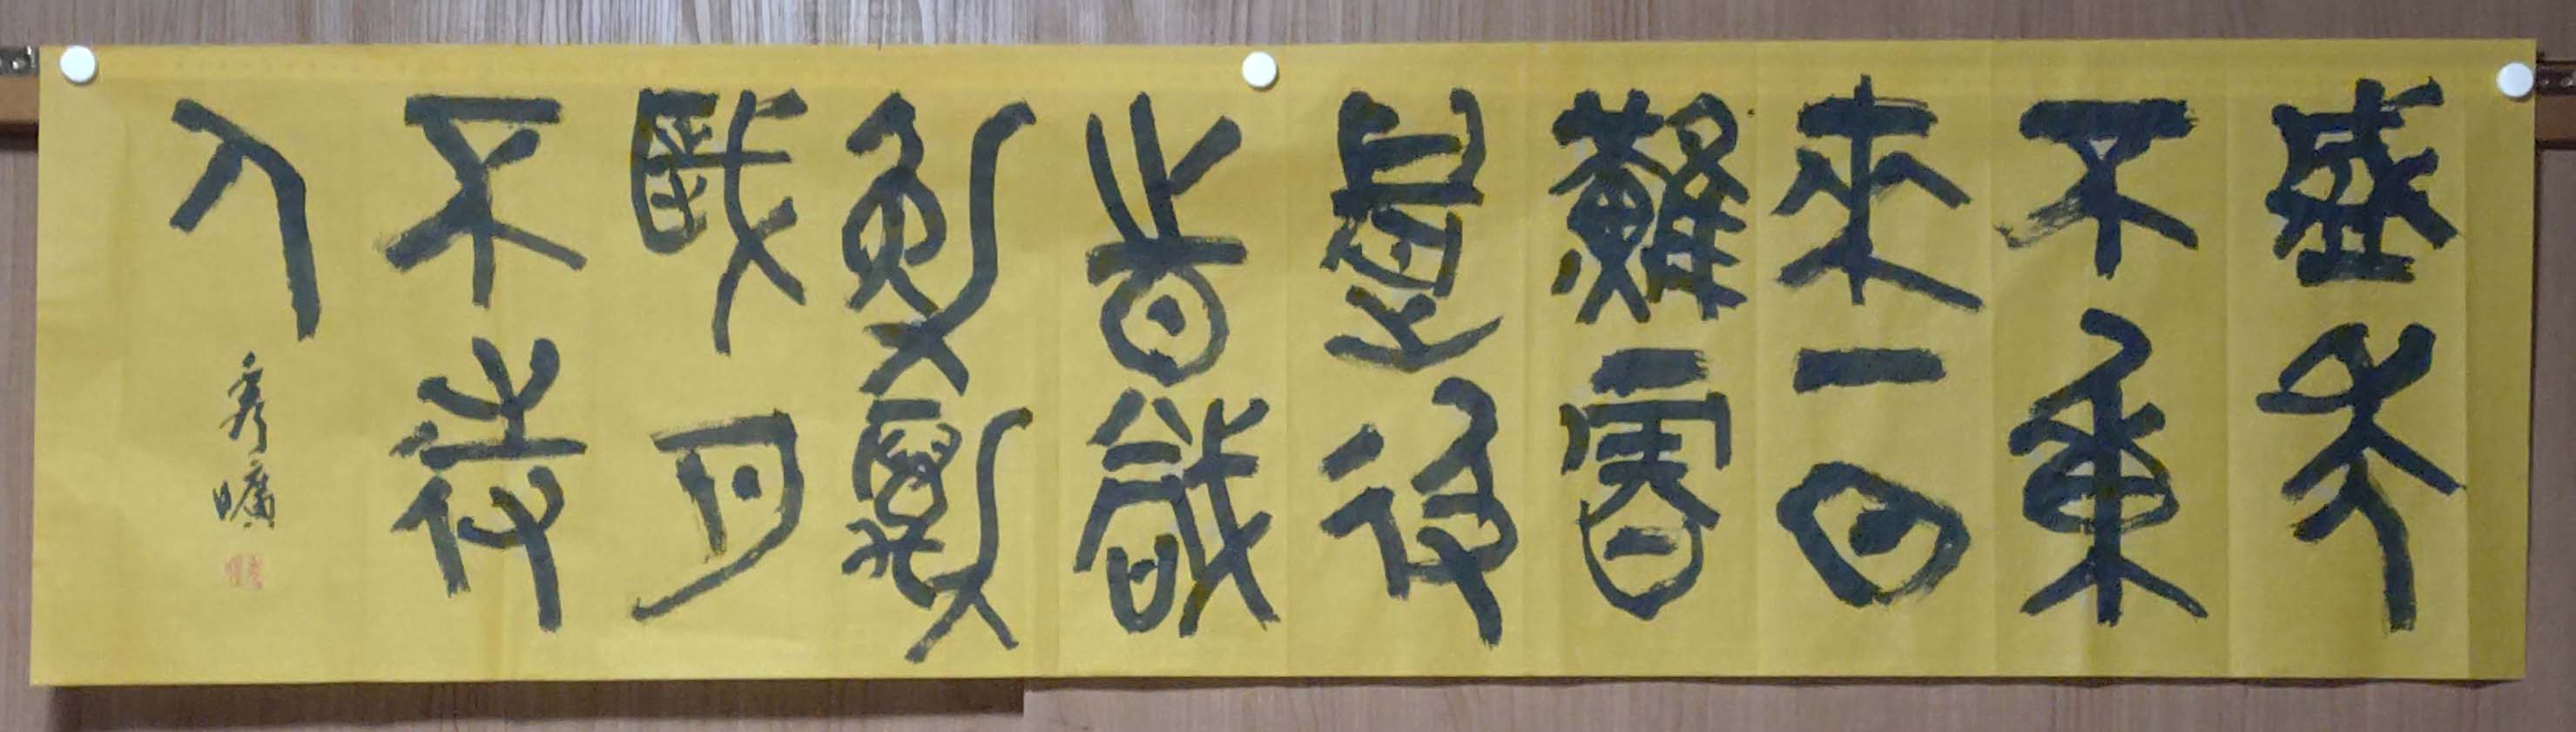 盛年
不重
來一日
難再
晨及
時當
勉勵
歲月
不待
人
秀曠